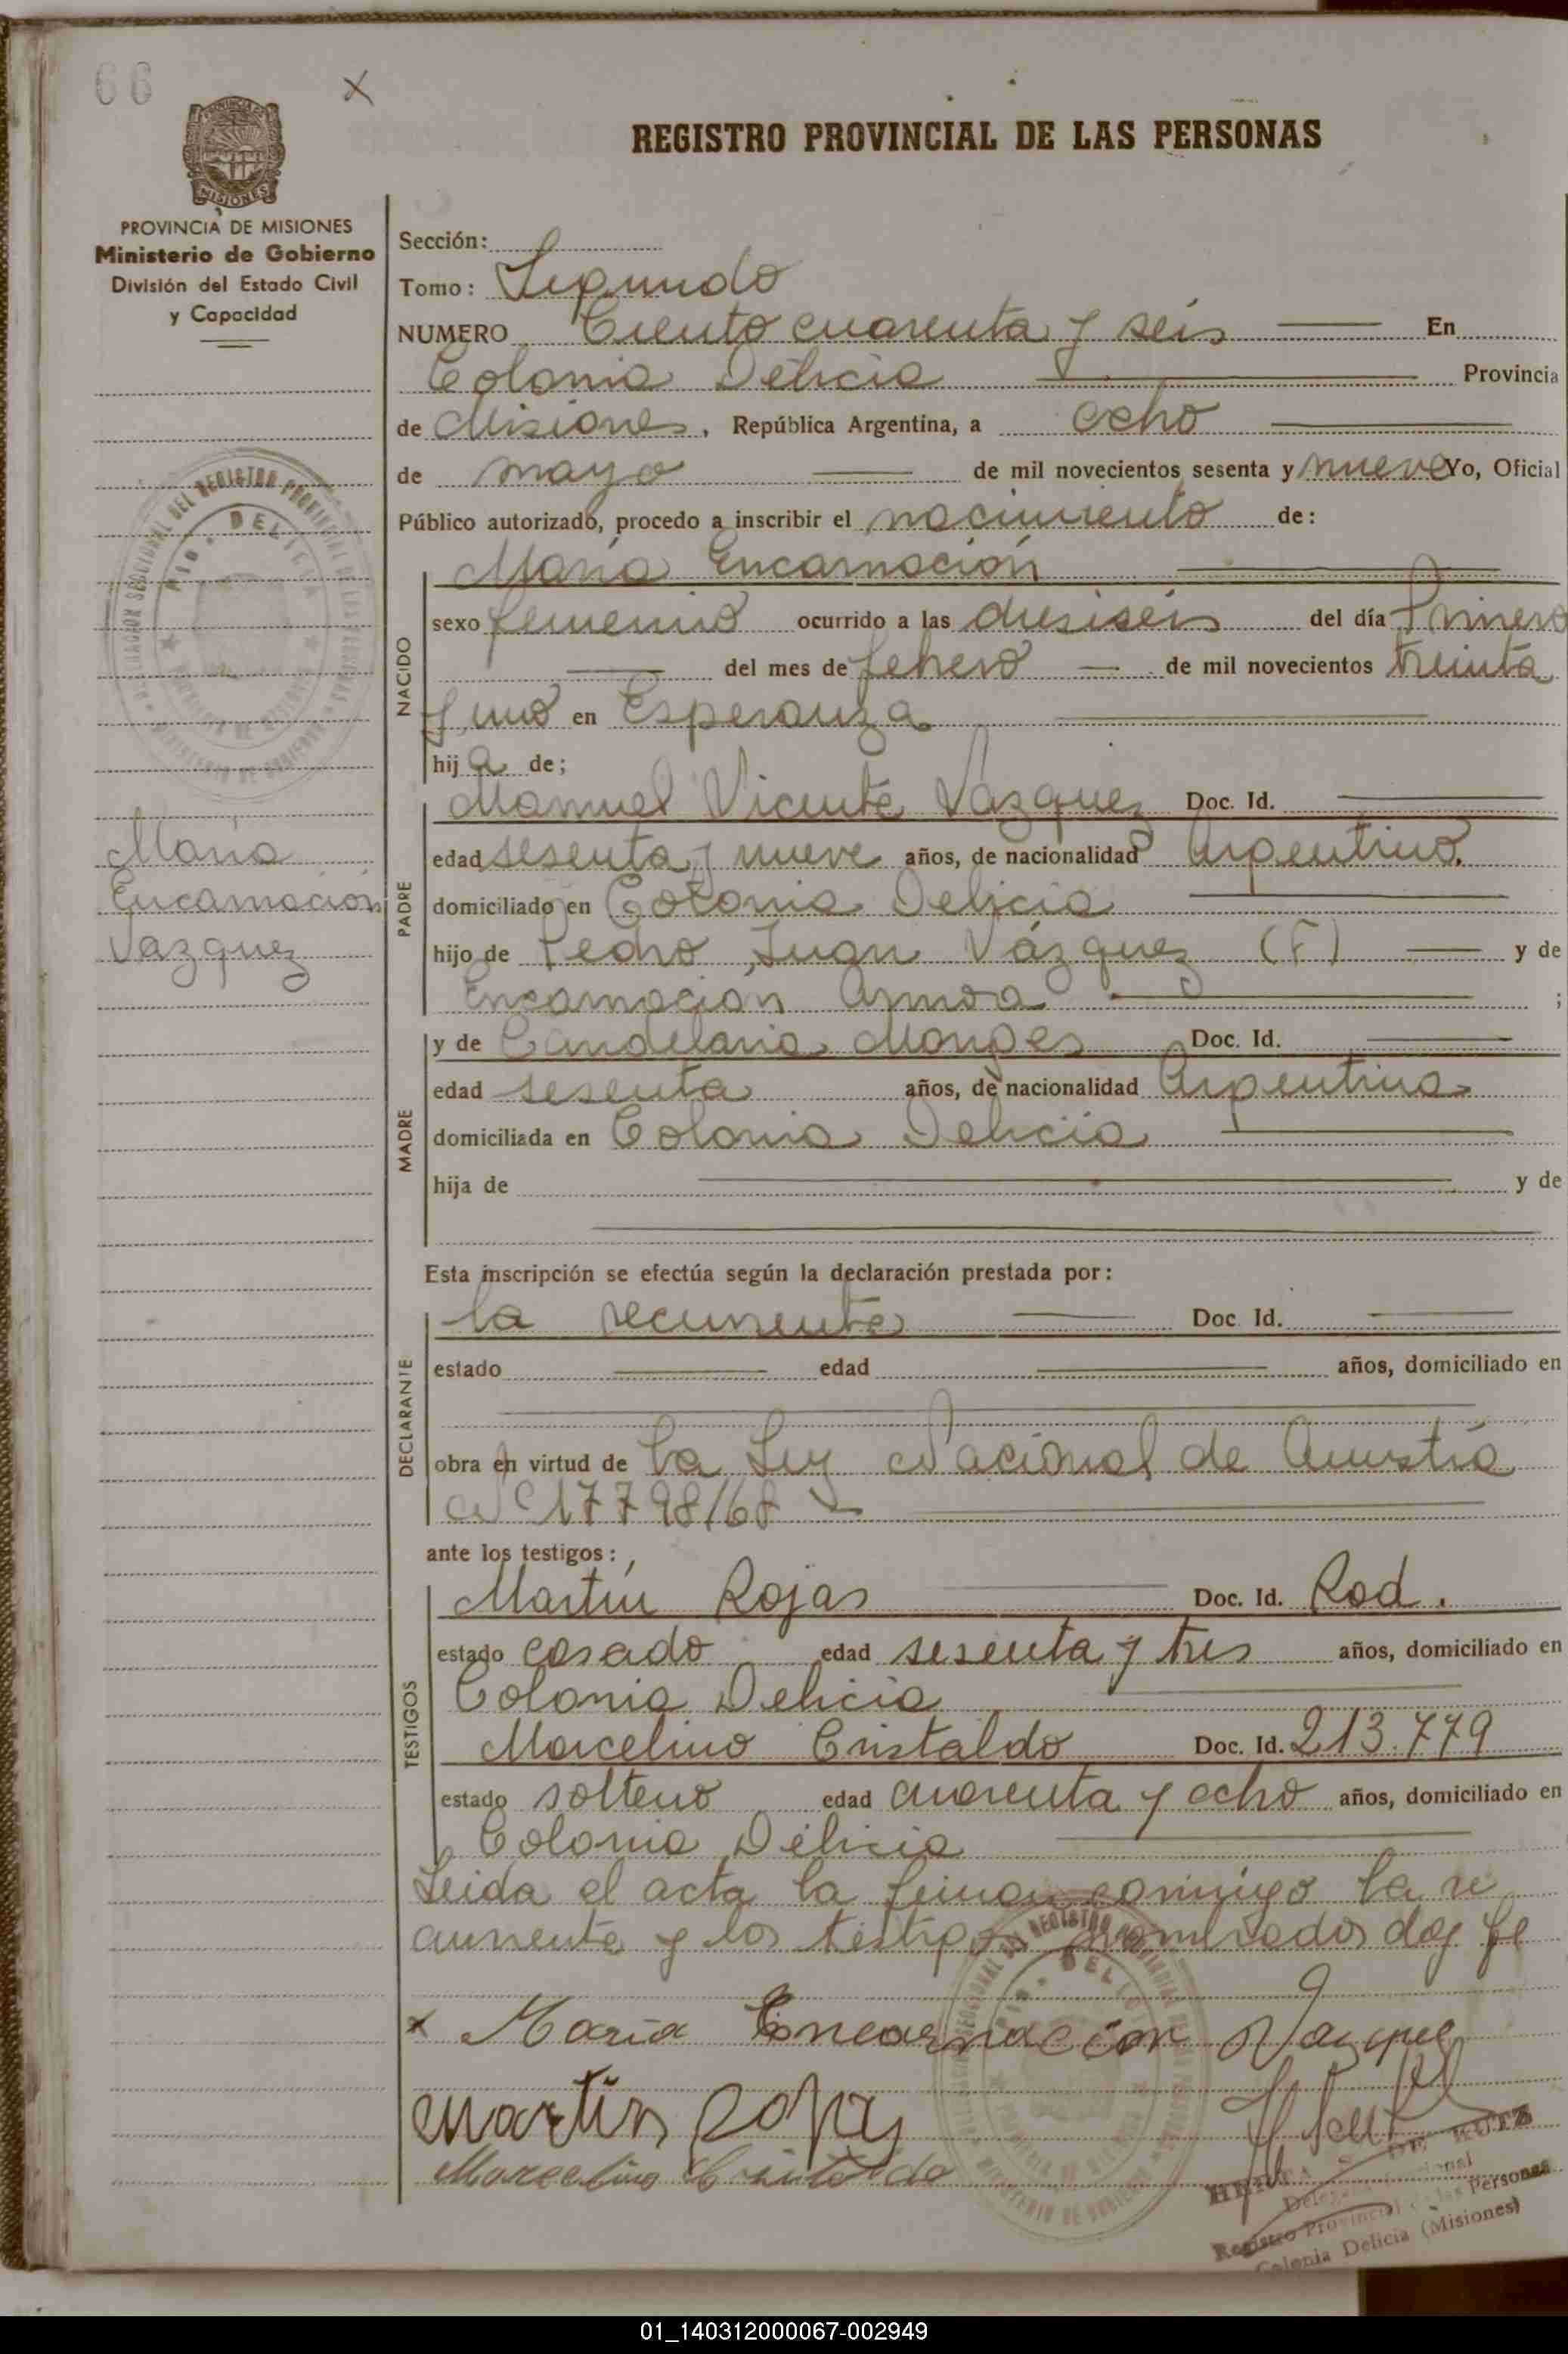 66
X
PROVINCIA DE MISIONES
MISIONES
PROVINCIA DE MISIONES
Ministerio de Gobierno
División del Estado Civil
y Capacidad
REGISTRO PROVINCIAL DE LAS PERSONAS
Sección:
Tomo: Segundo
NUMERO Ciento cuarenta y seis En
Colonia Delicia Provincia
de Misiones, República Argentina, a ocho
de mayo de mil novecientos sesenta y nueve Yo, Oficial
Público autorizado, procedo a inscribir el nacimiento de:
NACIDO
María Encarnación
sexo femenino ocurrido a las diesiseis del día Primero
del mes de febrero de mil novecientos treinta
y uno en Esperanza
hija de;
María
Encarnación
Vazquez
PADRE
Manuel Vicente Vazquez Doc. Id.
edad sesenta y nueve años, de nacionalidad Argentino.
domiciliado en Colonia Delicia
hijo de Pedro Juan Vázquez (F) y de
Encarnación ;
MADRE
y de Candelaria Monges Doc. Id.
edad sesenta años, de nacionalidad Argentina
domiciliada en Colonia Delicia
hija de y de
Esta inscripción se efectúa según la declaración prestada por:
DECLARANTE
la recurrente Doc. Id.
estado edad años, domiciliado en
obra en virtud de la Ley Nacional de Amnistía
Nº 17798/68
ante los testigos:
TESTIGOS
Martín Rojas Doc. Id. Rod.
estado casado edad sesenta y tres años, domiciliado en
Colonia Delicia
Marcelino Cristaldo Doc. Id. 213.779
estado soltero edad cuarenta y ocho años, domiciliado en
Colonia Delicia
Leida el acta la firman conmigo la re
currente y los testigos nombrados doy fe
x María Encarnación Vazquez
Martin Rojas
Marcelino Cristaldo
DE KUTZ
Registro Provincial de las Personas
Colonia Delicia (Misiones)
01_140312000067-002949